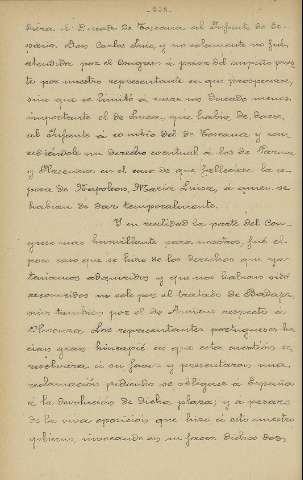 - 228 -
biera el Ducado de Toscana al Infante de Es-
paña Don Carlos Luis, y no solamente no fué
atendida por el Congreso á pesar del empeño pues-
to por nuestro representante en que prosperase,
sino que se limitó á crear un Ducado menos
importante el de Luca, que había de darse
al Infante á cambio del de Toscana y con-
cediéndole un derecho eventual á los de Parma
y Placencia en el caso de que falleciera la es-
posa de Napoleon, María Luisa, á quien se
habían de dar temporalmente.
Y en realidad la parte del Con-
greso mas humillante para nosotros, fué el
poco caso que se hizo de los derechos que ya
teníamos adquiridos y que nos habían sido
reconocidos no solo por el tratado de Badajoz
sino también por el de Amiens respecto á
Olivenza. Los representantes portugueses ha-
cían gran hincapié en que esta cuestión se
resolviera á su favor y presentaron una
reclamación pidiendo se obligase á España
á la devolución de dicha plaza; y á pesar
de la viva oposición que hizo á esto nuestro
gobierno, invocando en su favor dichos dos